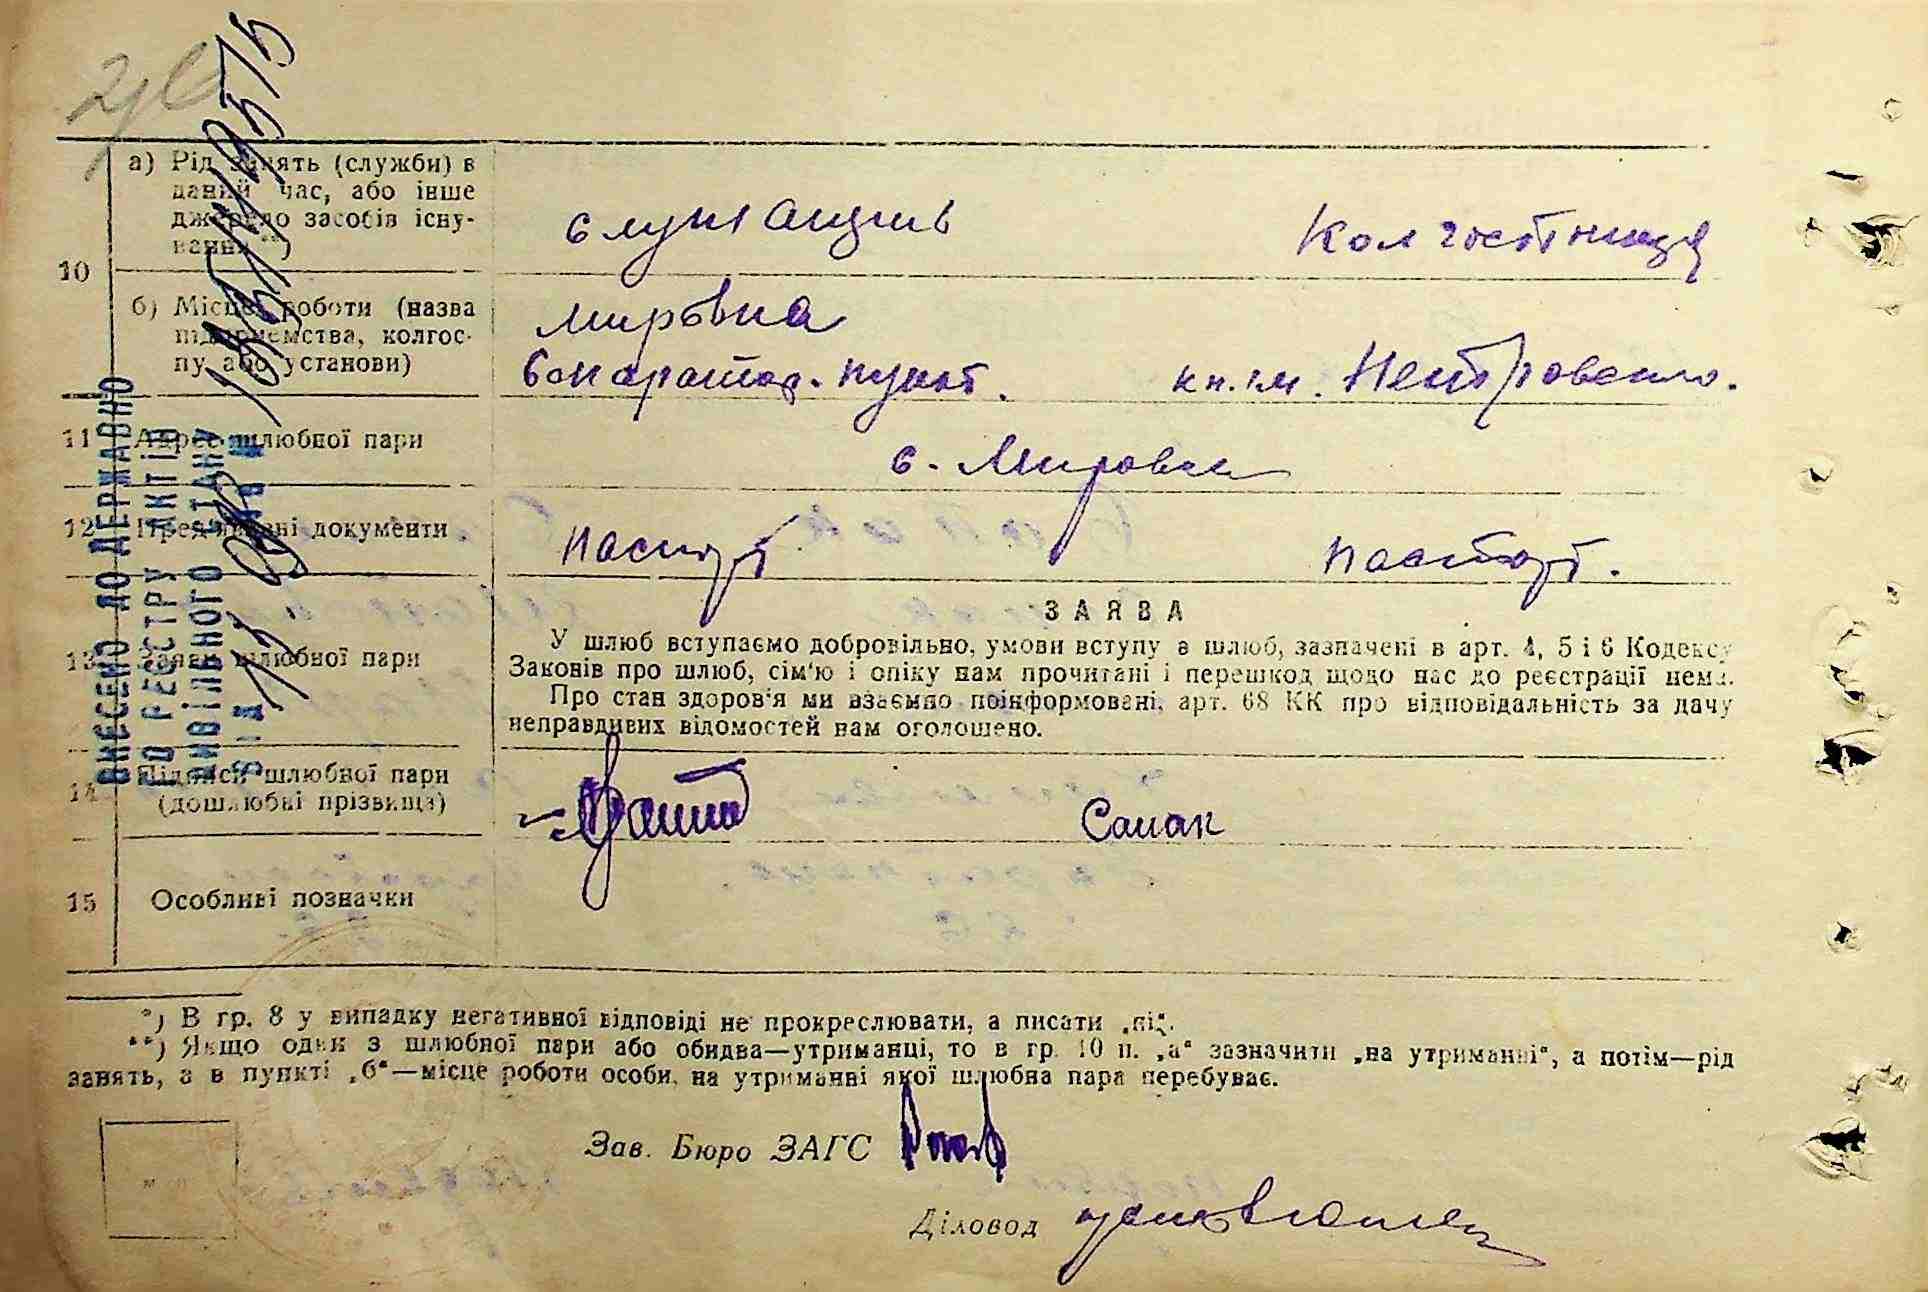 10
а) Рід занять (служби) в
даний час, або інше
джерело засобів існу-
вання **)
служащий
Колгостница
б) Місце роботи (назва
підприємства, колгос-
пу або установи)
Мировка
Сепаратор. пункт.
к-п. им. Петровского.
11 Адрес шлюбної пари
с. Мировка
12 Пред'явлені документи
паспорт
паспорт.
13 Заява шлюбної пари
ЗАЯВА
У шлюб вступаємо добровільно, умови вступу в шлюб, зазначені в арт. 4, 5 і 6 Кодексу
Законів про шлюб, сім'ю і опіку нам прочитані і перешкод щодо нас до реєстрації нема.
Про стан здоров'я ми взаємно поінформовані, арт. 68 КК про відповідальність за дачу
неправдивих відомостей нам оголошено.
14 Підписи шлюбної пари
(дошлюбні прізвища)
Сапак
15 Особливі позначки
*) В гр. 8 у випадку негативної відповіді не прокреслювати, а писати „ні“.
**) Якщо один з шлюбної пари або обидва—утриманці, то в гр. 10 п. „а“ зазначити „на утриманні“, а потім—рід
занять, а в пункті „б“—місце роботи особи, на утриманні якої шлюбна пара перебуває.
Зав. Бюро ЗАГС
Діловод
ВНЕСЕНО ДО ДЕРЖАВНО
ГО РЕЄСТРУ АКТІВ
ЦИВІЛЬНОГО СТАНУ